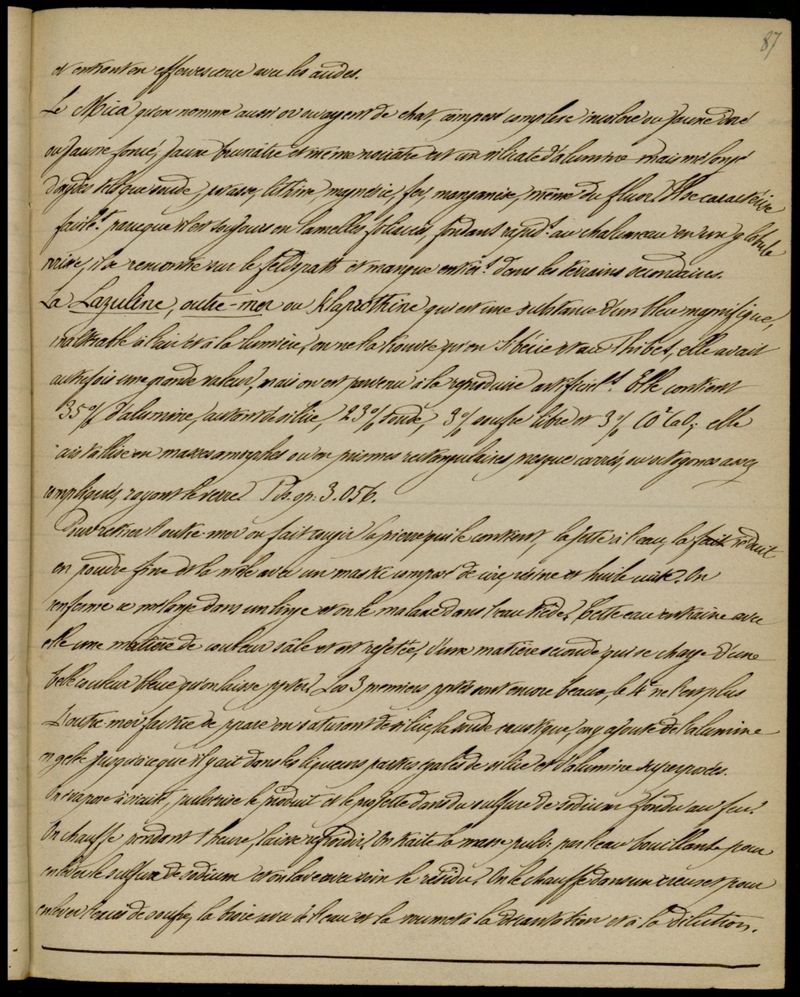 87
et entrant en effervescence avec les acides.
Le Mica, qu'on nomme aussi or ou argent de chat, composé complexe incolore ou jaune doré
ou jaune foncé, jaune brunâtre et même noirâtre est un silicate d'alumine mais mélangé
d'oxydes tels que soude, potasse, lithine magnésie, fer, manganèse, même du fluor. Il se caractérise
facilt. parceque il est toujours en lamelles foliacées, fondant rapidt. au chalumeau en un globule
il se rencontre sur le feldspath et manque entièrt. dans les terrains secondaires.
La Lazuline, outre-mer ou Klaprothine qui est une substance d'un bleu magnifique,
inaltérable à l'air et à la lumière, on ne la trouve qu'en Sibérie et au Thibet, elle avait
autrefois une grande valeur, mais on est parvenu à la reproduire artificielt. Elle contient
35% d'alumine, autant de silice, 23% soude, 3% soufre libre et 3% CO²CaO; elle
cristallise en masses amorphes ou en prismes rectangulaires presque carrés, ou octogones assez
compliqués, rayant le verre. Pds. sp. 3.056.
Pour retirer l'outre-mer on fait rougir la pierre qui le contient, la jette à l'eau, la fait réduit
en poudre fine et la mêle avec un mastic composé de cire, résine et huile cuite. On
renferme ce mélange dans un linge et on le malaxe dans l'eau tiède. Cette eau entraine avec
elle une matière de couleur sale et est rejetée, d'une matière seconde qui se charge d'une
belle couleur bleue qu'on laisse pptée. Les 3 premiers pptés sont encore beaux, le 4e ne l'est plus
L'outre-mer factice se ppare en saturant de silice, la soude caustique, on y ajoute de l'alumine
en gelée jusqu'à ce que il y ait dans les liqueurs parties égales de silice et d'alumine
On évapore à siccité, pulvérise le produit et le projette dans du sulfure de sodium fondu au feu.
On chauffe pendant 1 heure, laisse refroidir. On traite la masse pulv. par l'eau bouillante pour
enlever le sulfure de sodium et on lave avec soin le résidu. On le chauffe dans un creuset pour
enlever l'excès de soufre, la broie avec de l'eau et la soumet à la décantation et à la dilution.